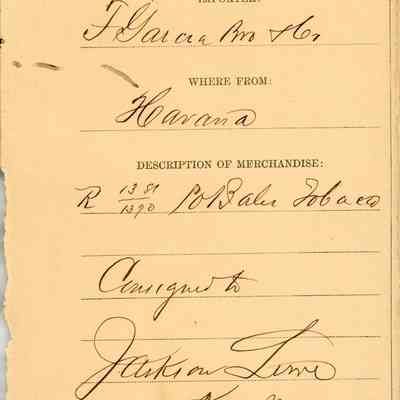 IMPORTER:
F Garcia Bro & Co
WHERE FROM:
Havana
DESCRIPTION OF MERCHANDISE:
R 1381/1390 10 Bales Tobacco
Consigned to
Jackson